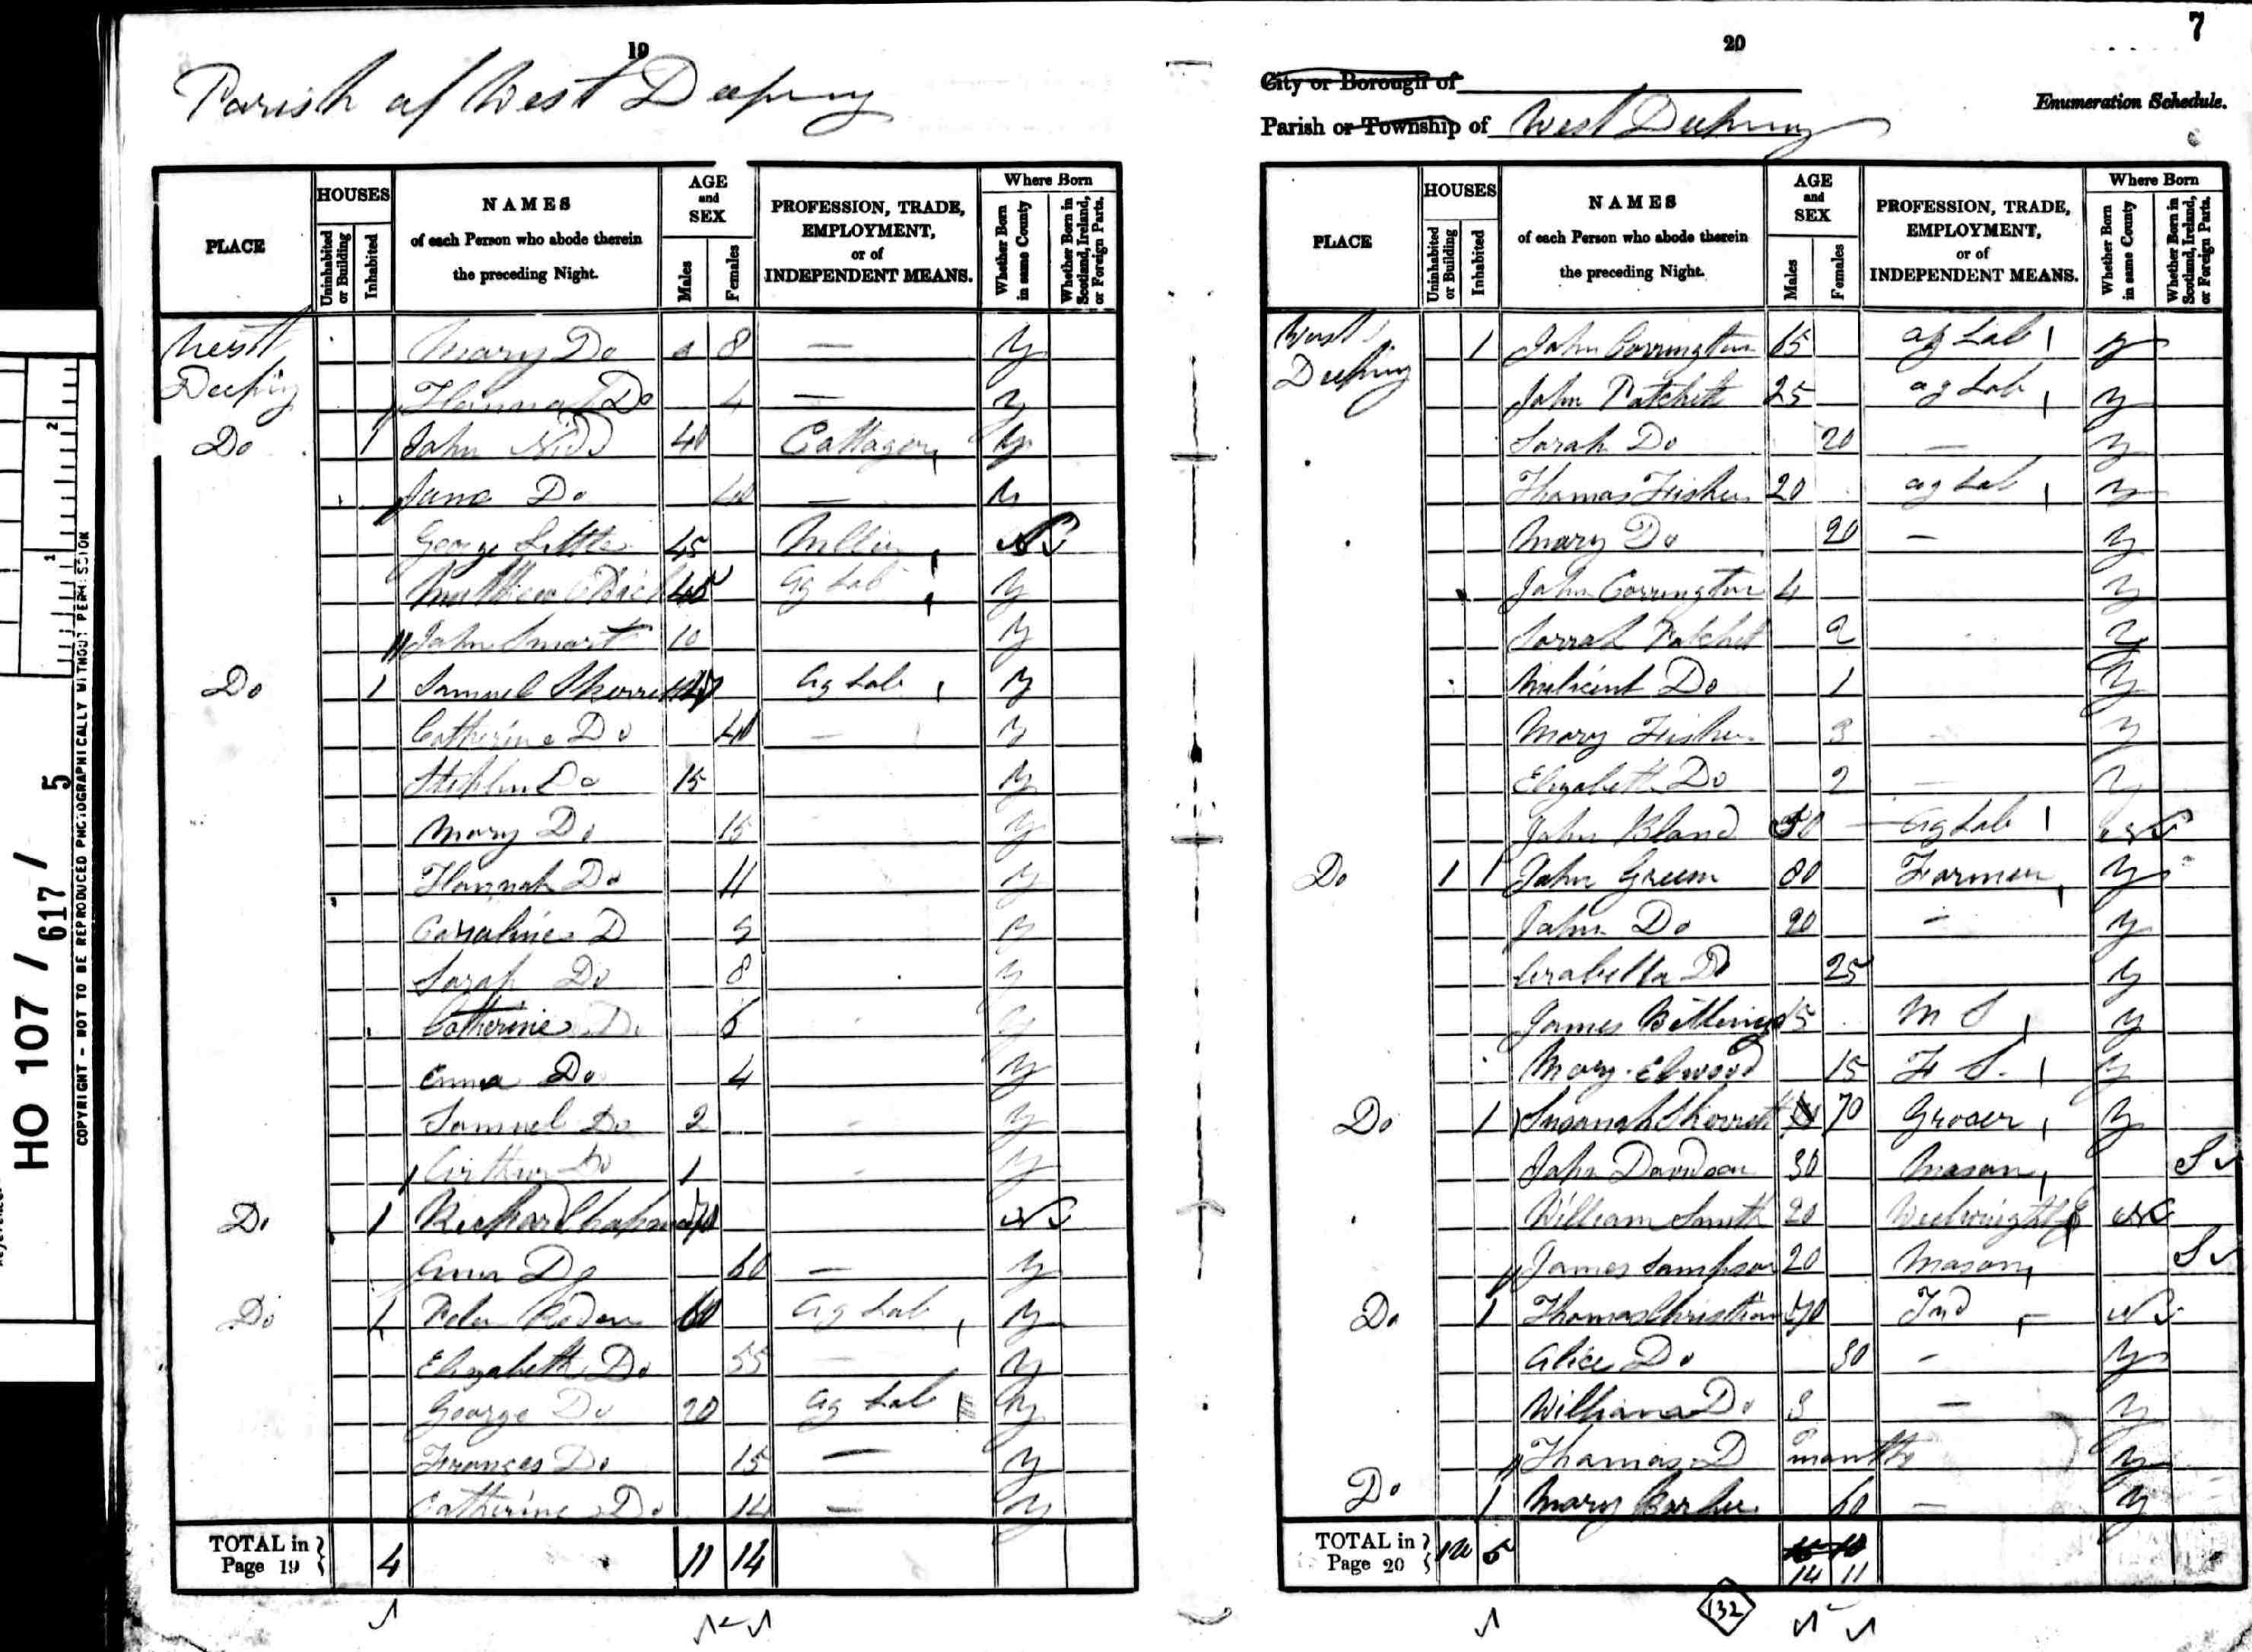 19
Parish of West Deeping
PLACE
HOUSES
Uninhabited or Building
Inhabited
NAMES
of each Person who abode therein
the preceding Night.
AGE
and
SEX
Males
Females
PROFESSION, TRADE,
EMPLOYMENT,
or of
INDEPENDENT MEANS.
Where Born
Whether Born in same County
Whether Born in Scotland, Ireland, or Foreign Parts.
West Mary Do 8 — y
Deeping Hannah Do 4 — y
Do 1 John Nidd 40 Cottager y
Jane Do 40 — y
George Little 45 N
Matthew 40 Ag Lab y
John Smart 10 y
Do 1 Samuel Sherrett Ag Lab y
Catherine Do 40 — y
Stephen Do 15 y
Mary Do 15 y
Hannah Do 11 y
Caroline D 9 y
Sarah Do 8 y
Catherine Do 6 y
Emma Do 4 y
Samuel Do 2 y
Arthur Do 1 y
Do 1 Richard Chapman 70 N
Ann Do 60 — y
Do 1 60 Ag Lab y
Elizabeth Do 55 — y
George Do 20 Ag Lab y
Frances Do 15 — y
Catherine Do 14 — y
TOTAL in
Page 19 } 4 11 14
7
20
City or Borough of
Enumeration Schedule.
Parish or Township of West Deeping
PLACE
HOUSES
Uninhabited or Building
Inhabited
NAMES
of each Person who abode therein
the preceding Night.
AGE
and
SEX
Males
Females
PROFESSION, TRADE,
EMPLOYMENT,
or of
INDEPENDENT MEANS.
Where Born
Whether Born in same County
Whether Born in Scotland, Ireland, or Foreign Parts.
West 1 John Corrington 65 ag Lab y
Deeping John Patchett 25 ag Lab y
Sarah Do 20 — y
Thomas Fisher 20 ag Lab y
Mary Do 20 — y
John Corrington 4 y
Sarrah Patchett 2 y
Milicent Do 1 y
Mary Fisher 3 y
Elizabeth Do 2 — y
John Bland 50 Ag Lab N
Do 1 1 John Green 80 Farmer y
John Do 20 — y
Arabella Do 25 y
James Billings 15 M S y
Mary Elwood 15 F S. y
Do 1 Susanah Sherrett 70 Grocer y
John Davidson 30 Mason S
William Smith 20 Weelwright N
James Sampson 20 Mason S
Do 1 Thomas Christian 70 Ind N
Alice Do 30 — y
William Do 3 — y
Thomas D months y
Do 1 Mary 60 — y
TOTAL in
Page 20 } 5 14 11
132
HO 107 / 617 / 5
COPYRIGHT - NOT TO BE REPRODUCED PHOTOGRAPHICALLY WITHOUT PERMISSION
1
2